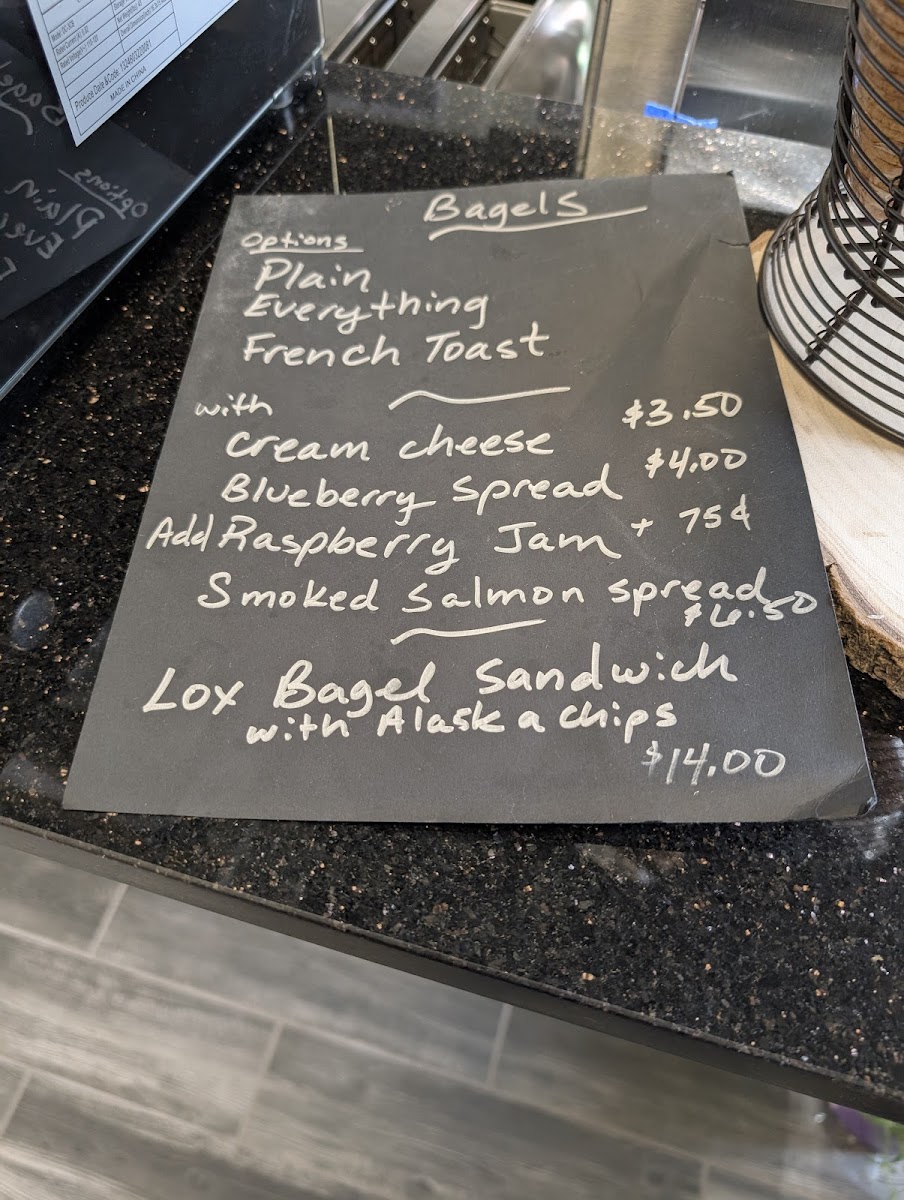 Produce Date &Code
MADE IN CHINA
Options
Plain
Bagels
Options
Plain
Everything
French Toast
with
cream cheese $3.50
Blueberry spread $4.00
Add Raspberry Jam + 75¢
Smoked salmon spread
$6.50
Lox Bagel Sandwich
with Alaska chips
$14.00